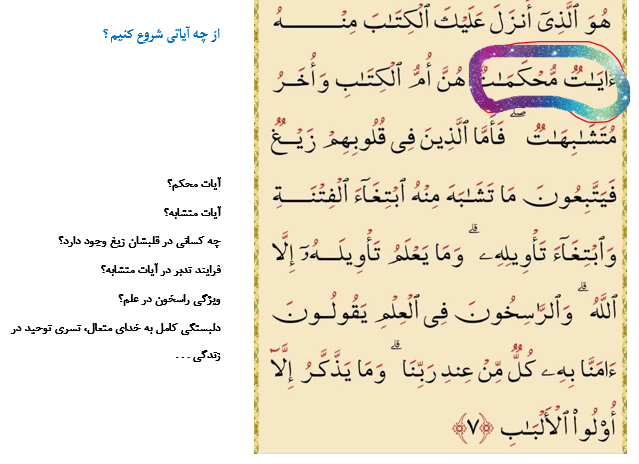 از چه آیاتی شروع کنیم ؟
آیات محکم؟
آیات متشابه؟
چه کسانی در قلبشان زیغ وجود دارد؟
فرایند تدبر در آیات متشابه؟
ویژگی راسخون در علم؟
دلبستگی کامل به خدای متعال، تسری توحید در
زندگی . . .
هُوَ ٱلَّذِيٓ أَنزَلَ عَلَيۡكَ ٱلۡكِتَٰبَ مِنۡهُ
ءَايَٰتٞ مُّحۡكَمَٰتٌ هُنَّ أُمُّ ٱلۡكِتَٰبِ وَأُخَرُ
مُتَشَٰبِهَٰتٞۖ فَأَمَّا ٱلَّذِينَ فِي قُلُوبِهِمۡ زَيۡغٞ
فَيَتَّبِعُونَ مَا تَشَٰبَهَ مِنۡهُ ٱبۡتِغَآءَ ٱلۡفِتۡنَةِ
وَٱبۡتِغَآءَ تَأۡوِيلِهِۦۗ وَمَا يَعۡلَمُ تَأۡوِيلَهُۥٓ إِلَّا
ٱللَّهُۗ وَٱلرَّٰسِخُونَ فِي ٱلۡعِلۡمِ يَقُولُونَ
ءَامَنَّا بِهِۦ كُلّٞ مِّنۡ عِندِ رَبِّنَاۗ وَمَا يَذَّكَّرُ إِلَّآ
أُوْلُواْ ٱلۡأَلۡبَٰبِ ﴿٧﴾